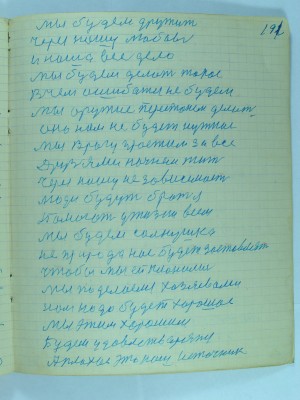 191
Мы будем дружит
Через нашу любовь
и наша все дело
Мы будем делать такое
В чем ошибатся не будем
Мы оружие перестанем делат
оно нам не будет нужное
Мы Врагу простим за все
Друзями начнем жит
Через нашу независимост
Люди будут братя
Помогат друг всем
Мы будем
не природа нас будет заставлят
Чтобы мы ее
Мы поделаем хозяевами
нам надо будет хорошое
Мы этим хорошим
Будем удовлетворены
А плохое это наш источник